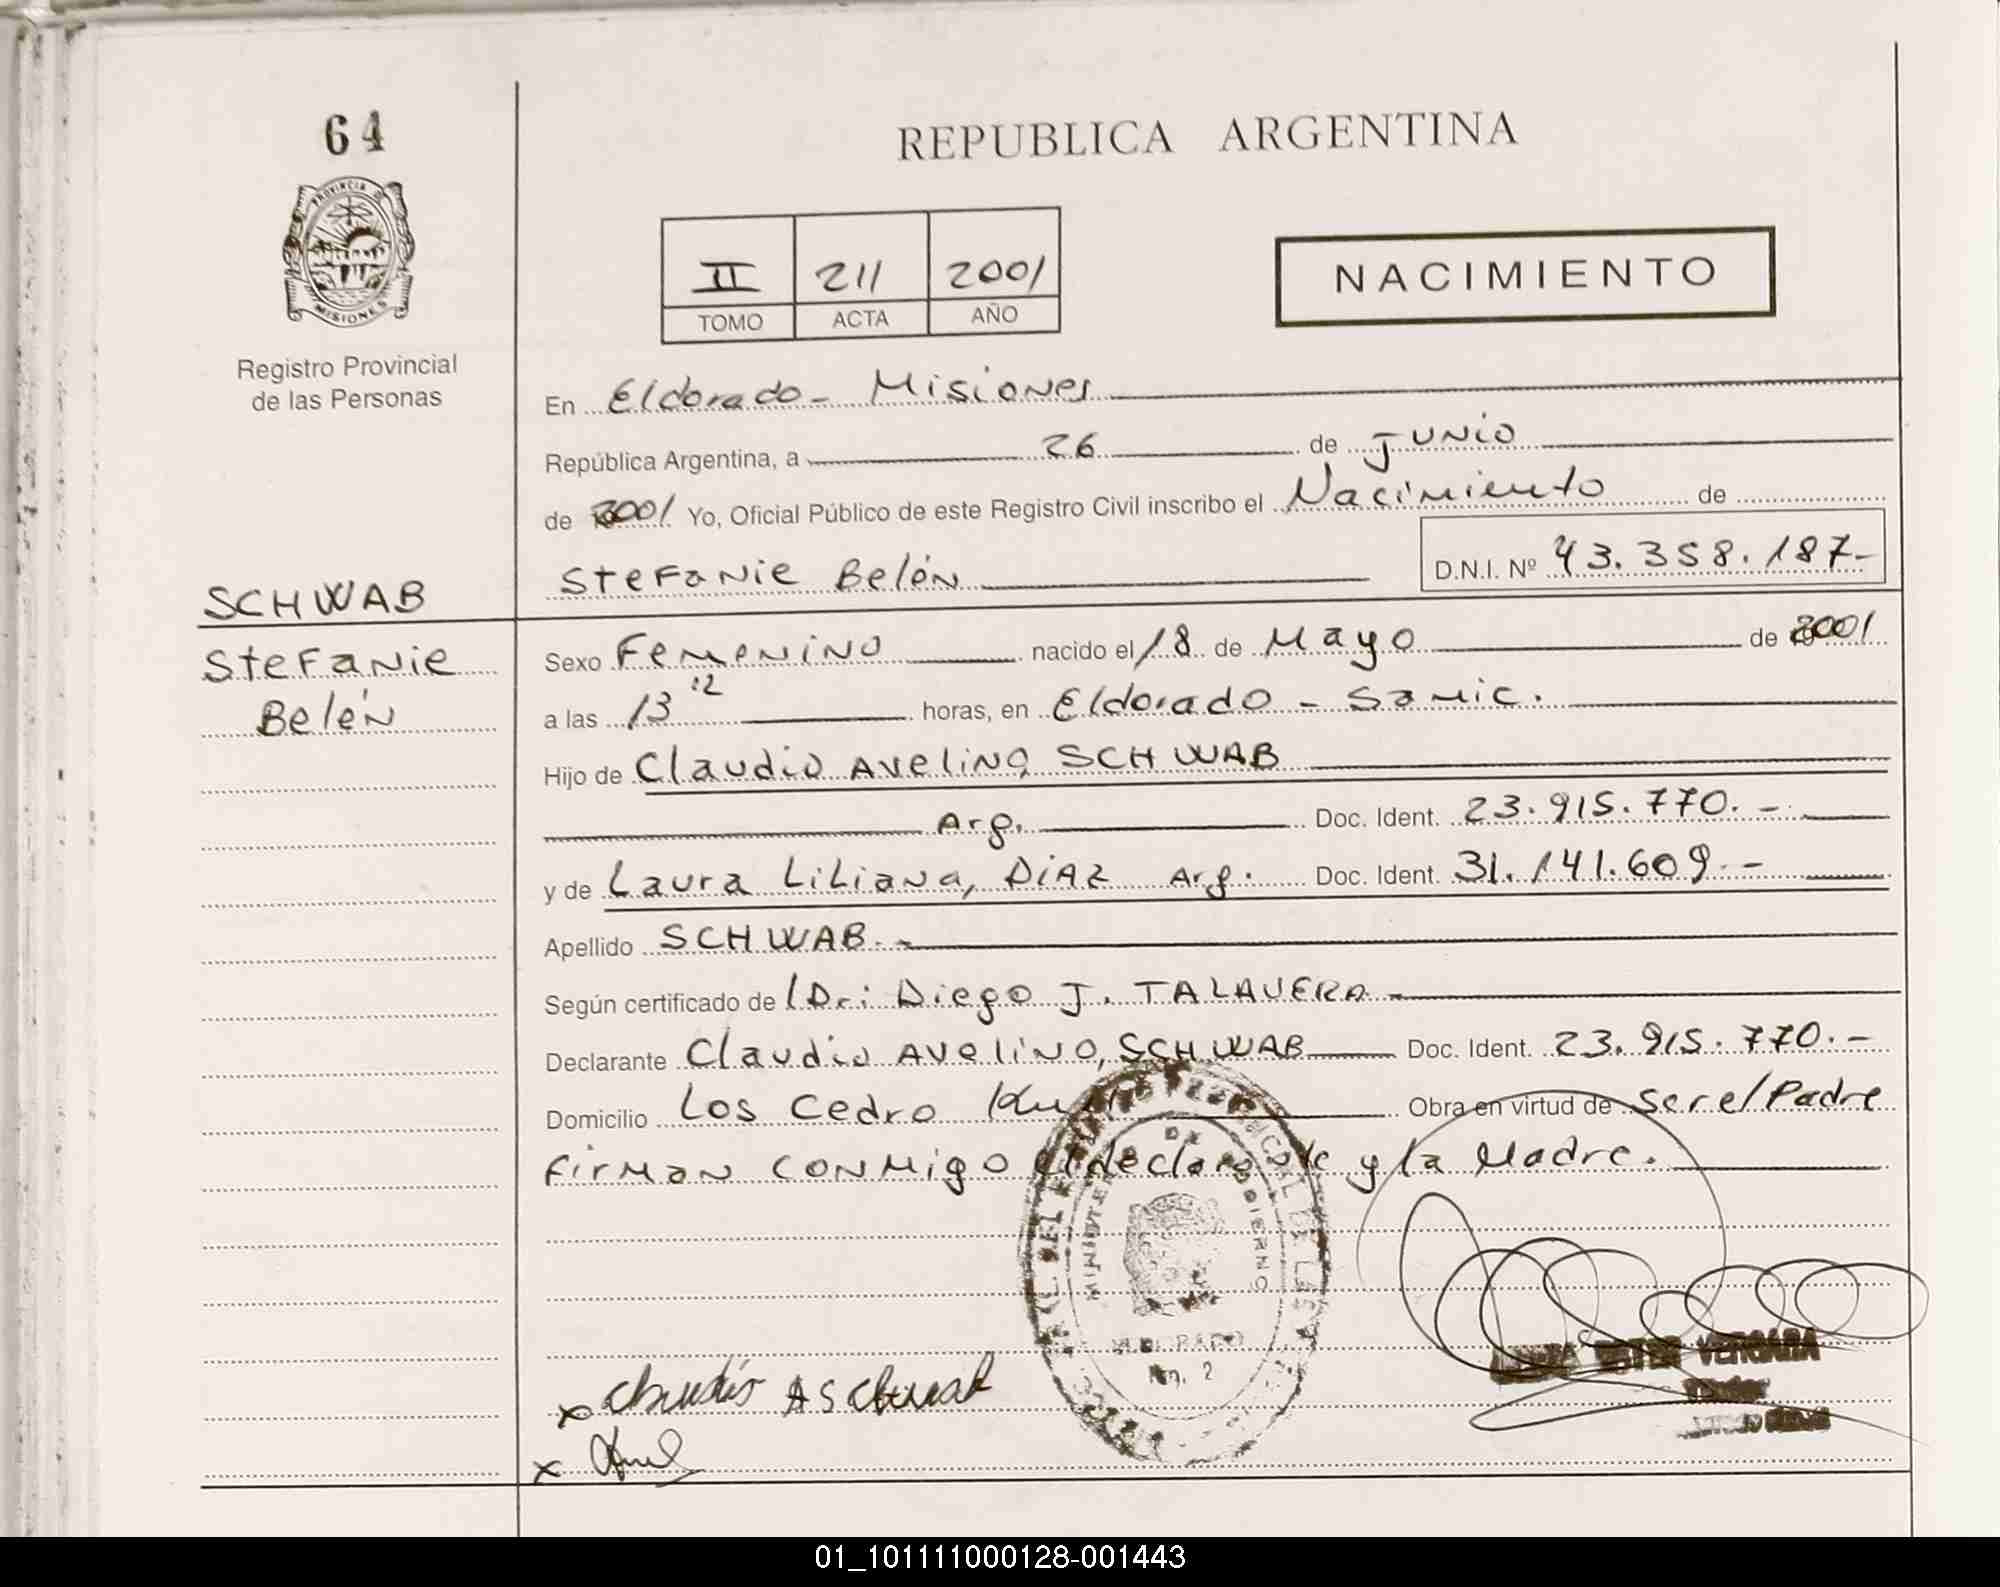 64
PROVINCIA DE
MISIONES
Registro Provincial
de las Personas
REPUBLICA ARGENTINA
II 211 2001
TOMO ACTA AÑO
NACIMIENTO
En Eldorado - Misiones
República Argentina, a 26 de Junio
de 2001 Yo, Oficial Público de este Registro Civil inscribo el Nacimiento de
Stefanie Belén D.N.I. Nº 43.358.187-
SCHWAB
Stefanie
Belén
Sexo Femenino nacido el 18 de Mayo de 2001
a las 13 12 horas, en Eldorado - Samic.
Hijo de Claudio Avelino SCHWAB
Arg. Doc. Ident. 23.915.770.-
y de Laura Liliana, DIAZ Arg. Doc. Ident. 31.141.609.-
Apellido SCHWAB.-
Según certificado de Dr: Diego J. TALAVERA
Declarante Claudio Avelino, SCHWAB Doc. Ident. 23.915.770.-
Domicilio Los Cedro Obra en virtud de ser el Padre
Firman conmigo el declarante y la Madre.
ELDORADO
2
VERGARA
x Claudio A Schwab
x
01_101111000128-001443